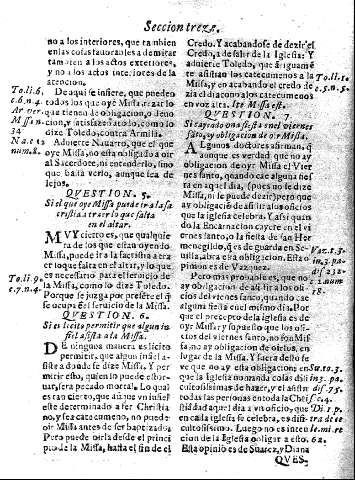 Seccion treze.
no a los interiores, que tambien
en las cosas fauorables a de mirar
tambien a los actos exteriores,
y no a los actos interiores de la
atencion.
To. li. 6.
c. 6. n. 4.
34
Na. c. 21
num. 8.
De aqui se infiere, que pueden
todos los que oyē Missa rezar lo
que tienen de obligacion, o deuo
cion, y satisfazē a todo, como lo
dize Toledo, contra Armilla.
Aduierte Nauarro, que el que
oye Missa, no està obligado a oir
al Sacerdote, ni entenderlo, sino
que basta verlo, aunque sea de
lejos.
QVESTION. 5.
Si el que oye Missa puede ir a la sa
cristia a traer lo que falta
en el altar.
To. li. 9.
c. 7. n. 4.
MVY cierto es, que qualquie
ra de los que estan oyendo
Missa, puede ir a la sacristia a tra
er lo que falta en el altar, y lo que
es necessario para el seruicio de
la Missa, como lo dize Toledo.
Porque se juzga por presete el q̄
se ocupa en el seruicio de la Missa.
QVESTION. 6.
Si es licito permitir que algun in
fiel asista a la Missa.
DE ninguna manera es licito
permitir, que algun infiel as
sista a donde se dize Missa. Y per
mitir esto, quien lo puede estor-
uar, sera pecado mortal. Lo qual
es tan cierto, que aūque vn infiel
este determinado a ser Christia
no, y sea catecumeno, no puede
oir Missa antes de ser baptizado.
Pero puede oirla desde el princi
pio de la Missa, hasta el fin de el
Credo. Y acabandose de dezir el
Credo, a de salir de la Iglesia: Y
aduierte Toledo, que antiguamē
te asistian los catecumenos a la
Missa, y en acabando el credo de
zia el diacono a los catecumenos
en voz alta. Ite Missa est.
To. li. 1.
c. 5. n. 5.
QVESTION. 7
Si cayendo vna fiesta en el viernes
santo, ay obligacion de oir Missa.
ALgunos doctores afirman, q̄
aunque es verdad que no ay
obligacion de oyr Missa el Vier
nes santo, quando cae alguna fies
ta en aquel dia, (pues no se dize
Missa, ni le puede dezir) pero que
ay obligacion de asistir a los oficios
que la iglesia celebra. Y asi quan
do la Encarnacion cayere en el vi
ernes santo, o la fiesta de san Her
menegildo, q̄ es de guarda en Se-
uilla, abra esta obligacion. Esta o
pinion es de Vazquez.
Vaz. t. 3.
in 3. pa.
Pero mas probable es, que no
ay obligacion de oir los oficios
del viernes santo, quando cae al-
guna fiesta en el mismo dia. Por
que el precepto de la iglesia es de
oyr Missa: Y supuesto que los ofi
cios del viernes santo, no son Mis
sa, ni ay obligacion de oirlos, en
lugar de la Missa. Y fuera desto se
ve que no ay esta obligacion en
que la iglesia no manda cosas difi
cultosissimas de hazer, y el asistir
todas las personas en toda la Chris
tiandad aquel dia a vn oficio, que
en cada iglesia se celebra, es dific
cultosissimo. Luego no es inten
cion de la Iglesia obligar a esto.
Esta opinion es de Suarez, y Diana
Su. to. 3.
in 3. pa.
disf. 75.
QVES-